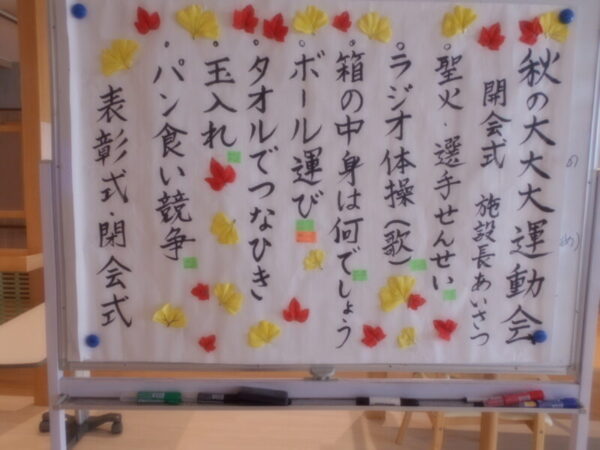 秋の大大大運動会
開会式 施設長あいさつ
・聖火・選手せんせい
・ラジオ体操(歌)
・箱の中身は何でしょう
・ボール運び
・タオルでつなひき
・玉入れ
・パン食い競争
表彰式・閉会式